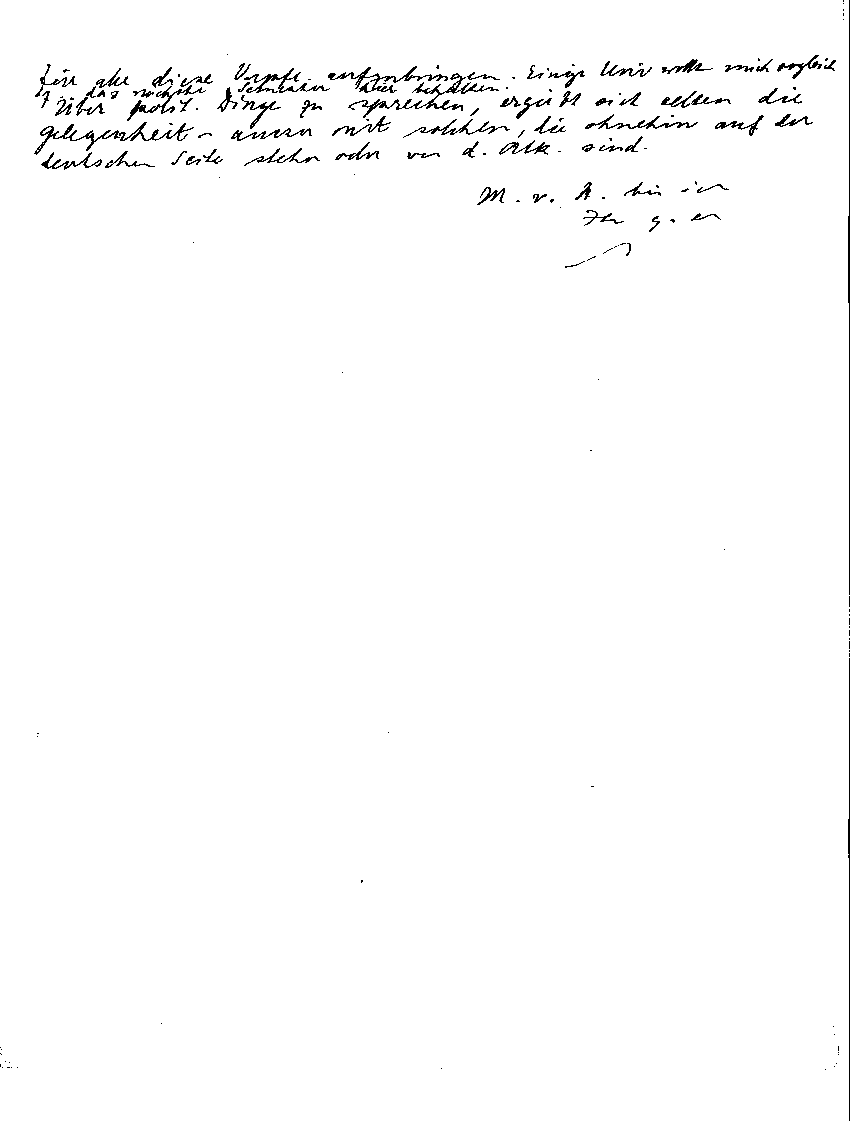 für alle diese Verpfl. aufzubringen. Einige Univ wollte mich sogleich
für das nächste Semester hier behalten.
Über polit. Dinge zu sprechen, ergibt sich selten die
gelegenheit – ausser mit solchen, die ohnehin auf der
deutschen Seite stehn oder von d. sind.
M. v. H. bin ich
Ihr g. er